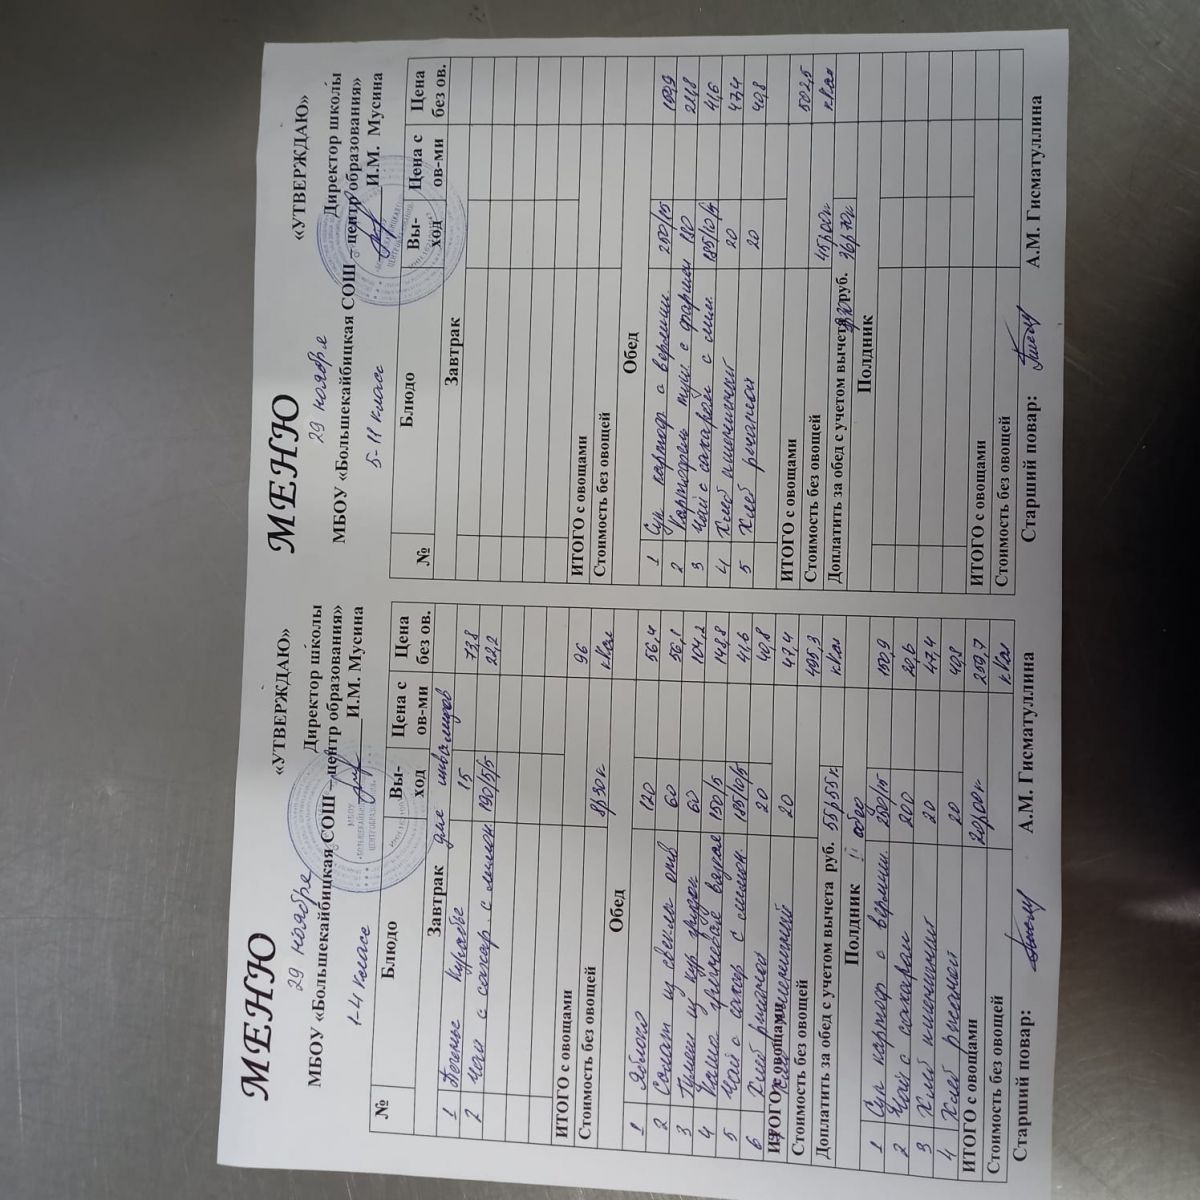 МЕНЮ
«УТВЕРЖДАЮ»
29 ноября
Директор школы
МБОУ «Большекайбицкая СОШ – центр образования»
И.М. Мусина
1-4 класс
№ Блюдо Вы-ход Цена с ов-ми Цена без ов.
Завтрак для инвалидов
1 Печенье Курабье 15 73,8
2 Чай с сахар. с лимон 190/5/5 22,2
ИТОГО с овощами 96
Стоимость без овощей 8р30к ккал
Обед
1 Яблоко 120 56,4
2 Салат из свеклы отв 60 56,1
3 60 104,2
4 Каша гречневая вязкая 150/5 148,8
5 Чай с сахар с лимон. 185/10/5 41,6
6 Хлеб ржаной 20 40,8
ИТОГО с овощами
7 Хлеб пшеничный 20 47,4
Стоимость без овощей 495,3
Доплатить за обед с учетом вычета руб. 55р55к ккал
Полдник II обед
1 Суп картоф с вермиш. 250/15 100,9
2 Чай с сахаром 200 20,6
3 Хлеб пшеничный 20 47,4
4 Хлеб ржаной 20 40,8
ИТОГО с овощами 20р00к 209,7
Стоимость без овощей ккал
Старший повар: А.М. Гисматуллина
МЕНЮ
«УТВЕРЖДАЮ»
29 ноября
Директор школы
МБОУ «Большекайбицкая СОШ – центр образования»
И.М. Мусина
5-11 класс
№ Блюдо Вы-ход Цена с ов-ми Цена без ов.
Завтрак
ИТОГО с овощами
Стоимость без овощей
Обед
1 Суп картоф с вермиш. 250/15
2 Картофель туш с фаршем 180
3 Чай с сахаром с лим. 185/10/5 41,6
4 Хлеб пшеничный 20 47,4
5 Хлеб ржаной 20 40,8
ИТОГО с овощами
Стоимость без овощей 45р00к 502,5
Доплатить за обед с учетом вычета руб. 36р70к ккал
Полдник
ИТОГО с овощами
Стоимость без овощей
Старший повар: А.М. Гисматуллина